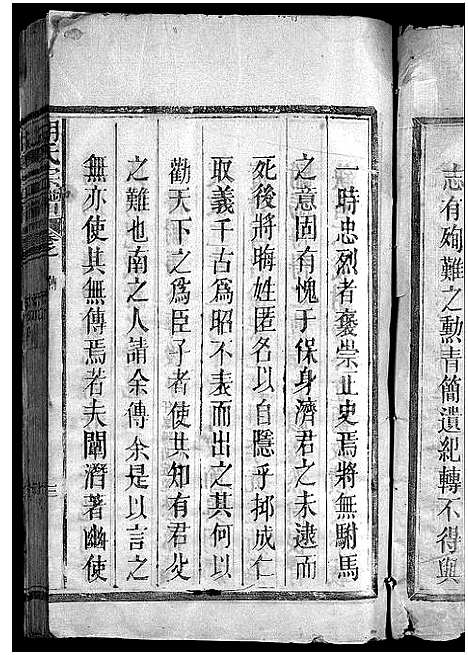 志有殉難之勲青簡遺紀轉不得與
一時忠烈者褒崇止史焉將無駙馬
之意固有愧于保身濟君之未逮而
死後將晦姓匿名以自隱乎抑成仁
取義千古為昭不表而出之其何以
勸天下之為臣子者使共知有君父
之難也南之人請余傳余是以言之
無亦使其無傳焉若夫闡潛著幽使
氏宗譜